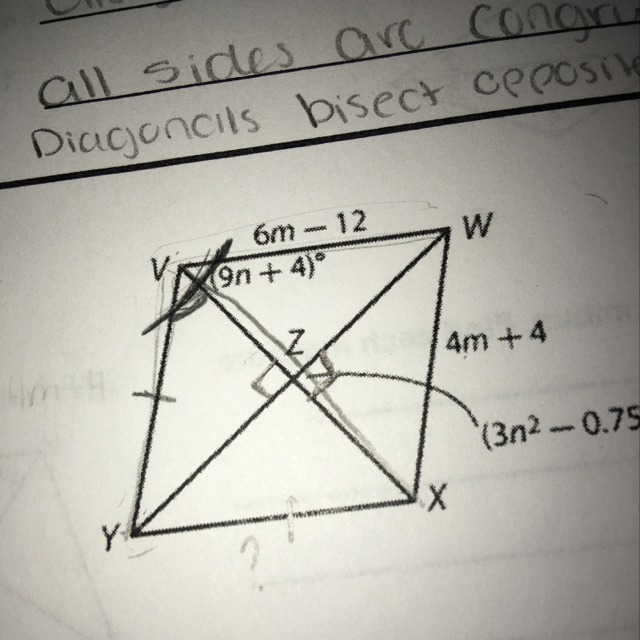 all sides are congru
Diagoncils bisect opposite
6m − 12
W
V
(9n + 4)°
Z
4m + 4
4m+4
(3n² − 0.75
X
Y
?